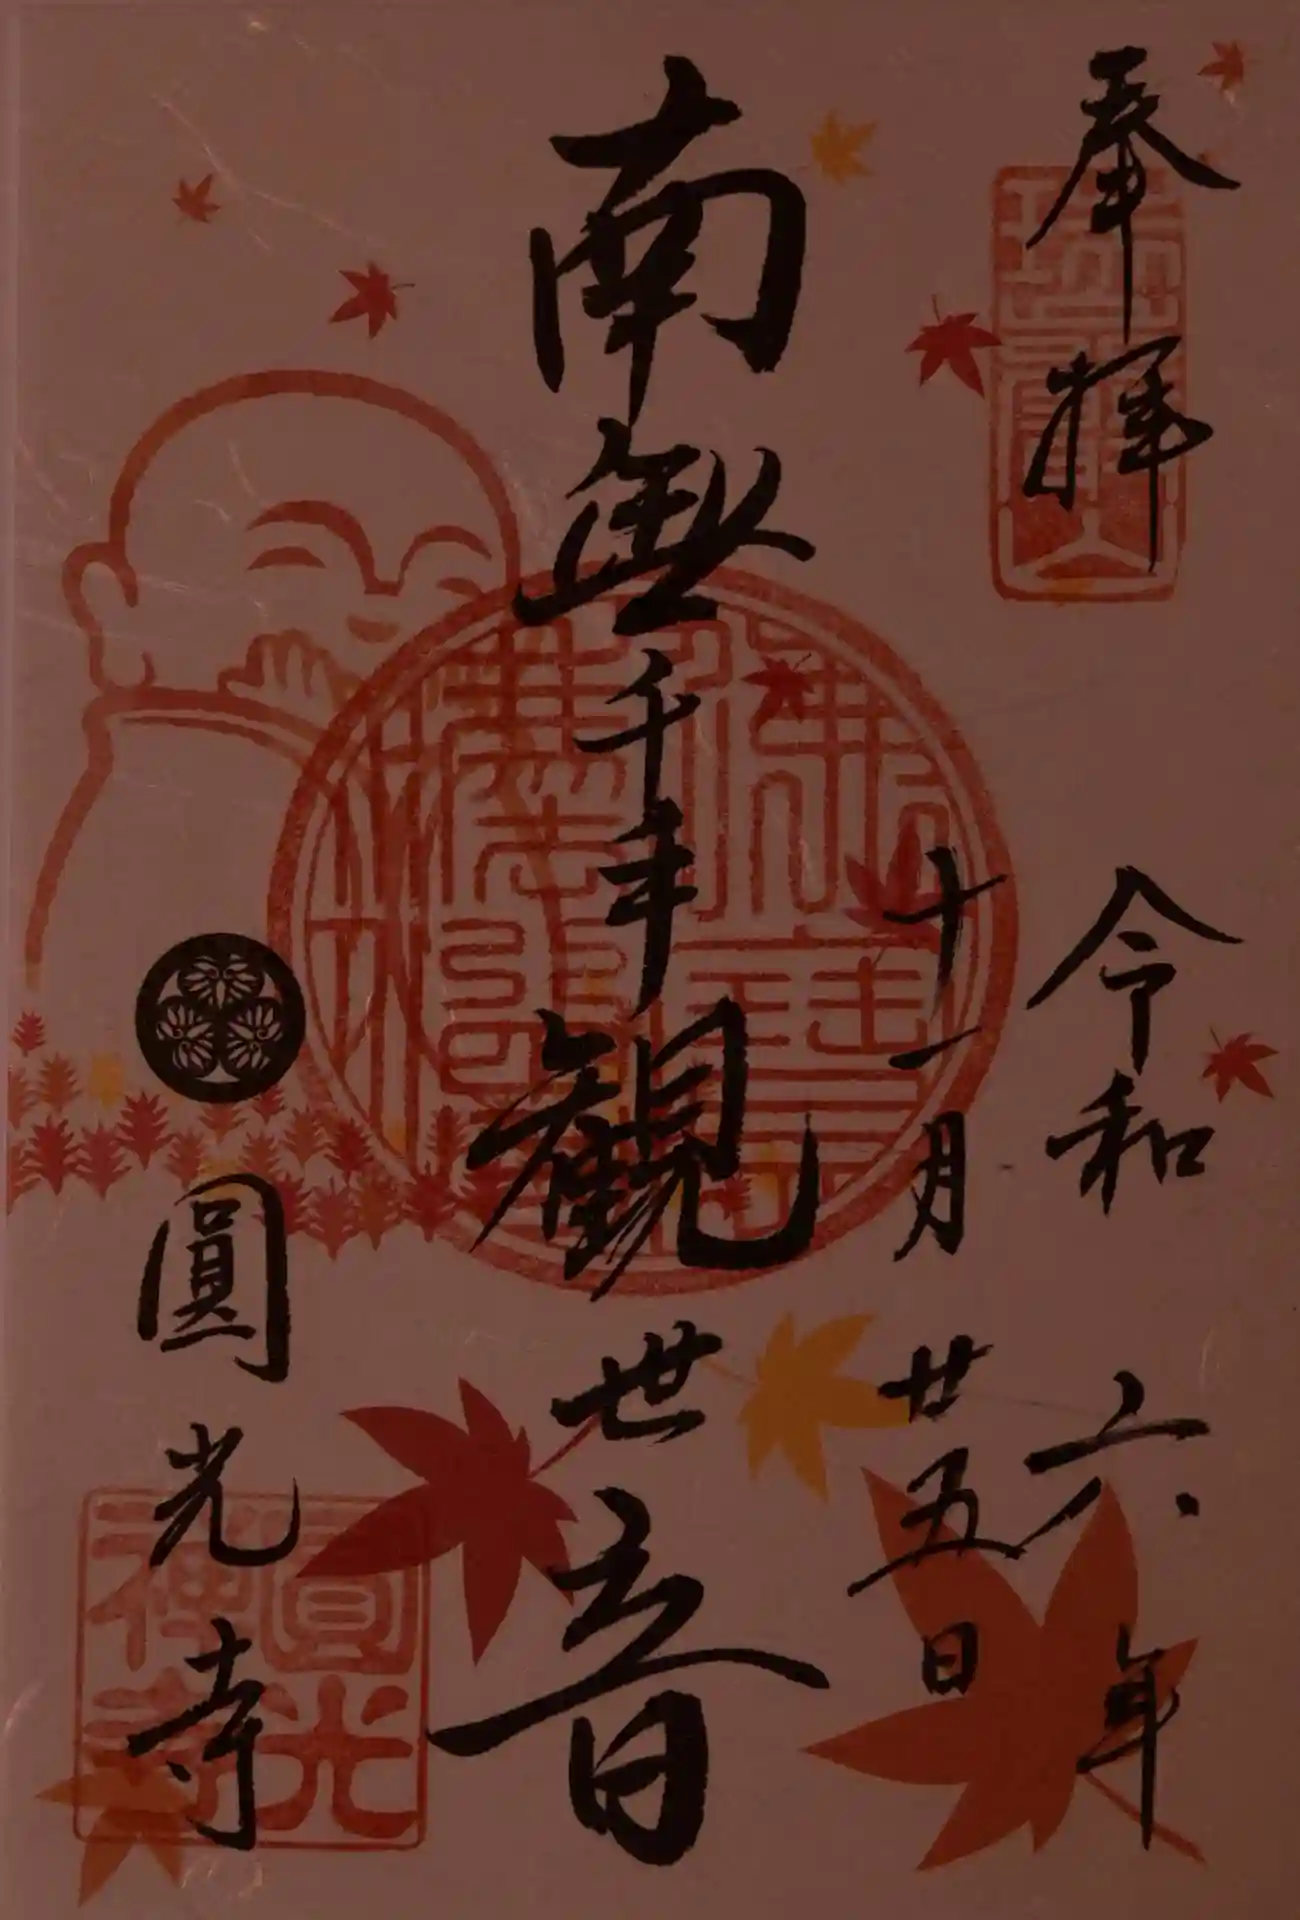 奉拝
令和六年
十一月廿五日
南無千手観世音
圓光寺
圓光
禅寺